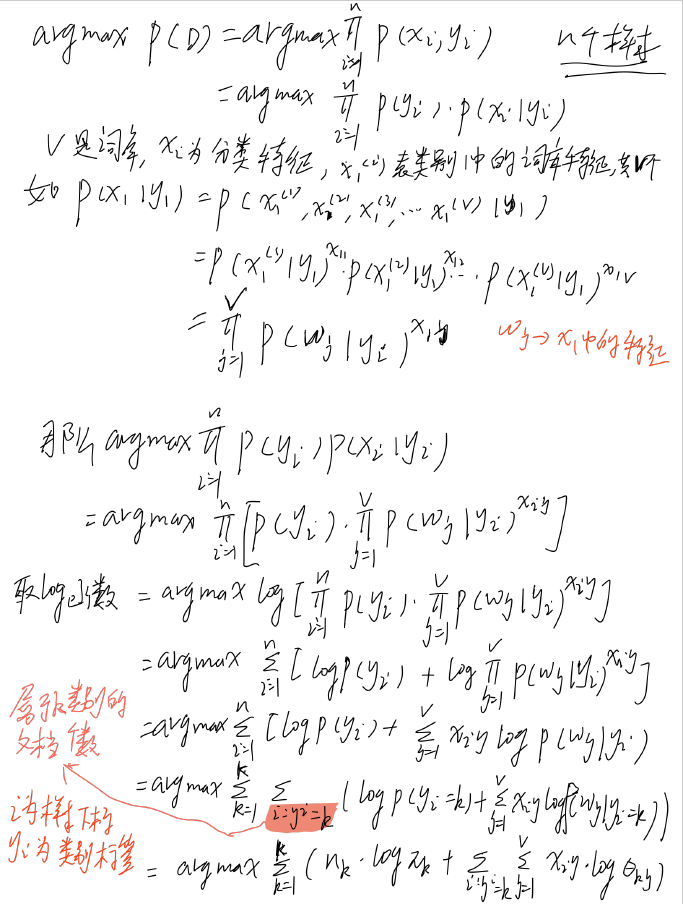 argmax P(D) = argmax ∏_{i=1}^{n} P(x_i, y_i) n个样本
= argmax ∏_{i=1}^{n} P(y_i)·P(x_i|y_i)
V是词库, x_i为分类特征, x_1^{(i)}表类别1中的词库特征, 共V个
如 P(x_1|y_1) = P(x_1^{(1)}, x_1^{(2)}, x_1^{(3)}, … x_1^{(V)} | y_1)
= P(x_1^{(1)}|y_1)^{x_{11}}·P(x_1^{(2)}|y_1)^{x_{12}} … P(x_1^{(V)}|y_1)^{x_{1V}}
= ∏_{j=1}^{V} P(w_j|y_i)^{x_{1j}} w_j → x_1中的特征
那么 argmax ∏_{i=1}^{n} P(y_i)P(x_i|y_i)
= argmax ∏_{i=1}^{n} [P(y_i)·∏_{j=1}^{V} P(w_j|y_i)^{x_{ij}}]
取log函数 = argmax log[∏_{i=1}^{n} P(y_i)·∏_{j=1}^{V} P(w_j|y_i)^{x_{ij}}]
= argmax ∑_{i=1}^{n} [log P(y_i) + log ∏_{j=1}^{V} P(w_j|y_i)^{x_{ij}}]
= argmax ∑_{i=1}^{n} [log P(y_i) + ∑_{j=1}^{V} x_{ij} log P(w_j|y_i)
= argmax ∑_{k=1}^{K} ∑_{i:y_i=k} (log P(y_i=k) + ∑_{j=1}^{V} x_{ij} log P(w_j|y_i=k))
= argmax ∑_{k=1}^{K} (n_k·log π_k + ∑_{i:y_i=k} ∑_{j=1}^{V} x_{ij}·log θ_{kj})
属于k类别的
文档个数
i为样本下标
y_i为类别标签